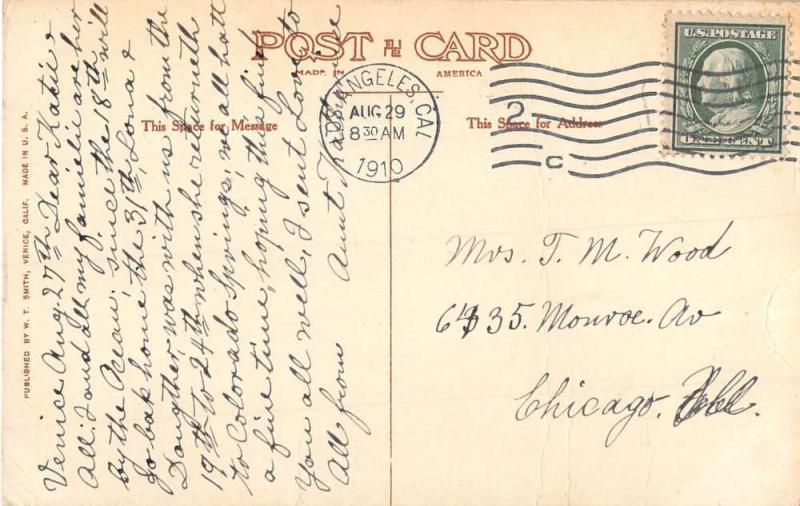 POST CARD
MADE IN AMERICA
This Space for Message
This Space for Address
PUBLISHED BY W. T. SMITH, VENICE, CALIF. MADE IN U. S. A.
LOS ANGELES, CAL
AUG 29
8 30 AM
1910
2
C
U.S. POSTAGE
ONE CENT
Venice Aug. 27th Dear Katie &
All. I and all my familie are her
by the Ocean; since the 18th will
go bak home the 31th, Lona &
Daugther was with us from the
19th to 24th when she returneth
to Colorado Springs; we all hatt
a fine time, hoping this find
You all well, I sent Love to
all from Aunt
Mrs. T. M. Wood
6435. Monroe. Av
Chicago. Ill.